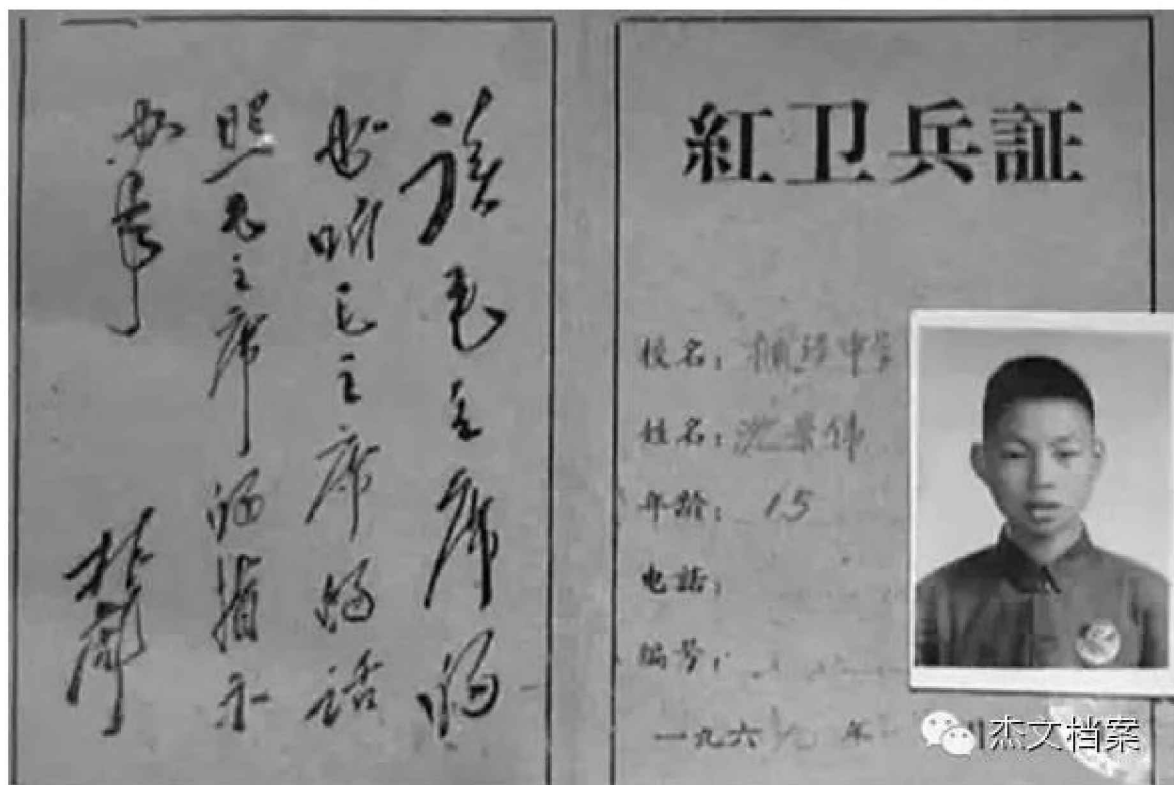 读毛主席的
书听毛主席的话
照毛主席的指示
办事
林彪
紅卫兵証
校名： 中学
姓名：沈 伟
年龄：15
电話：
编号：
一九六九年
杰文档案